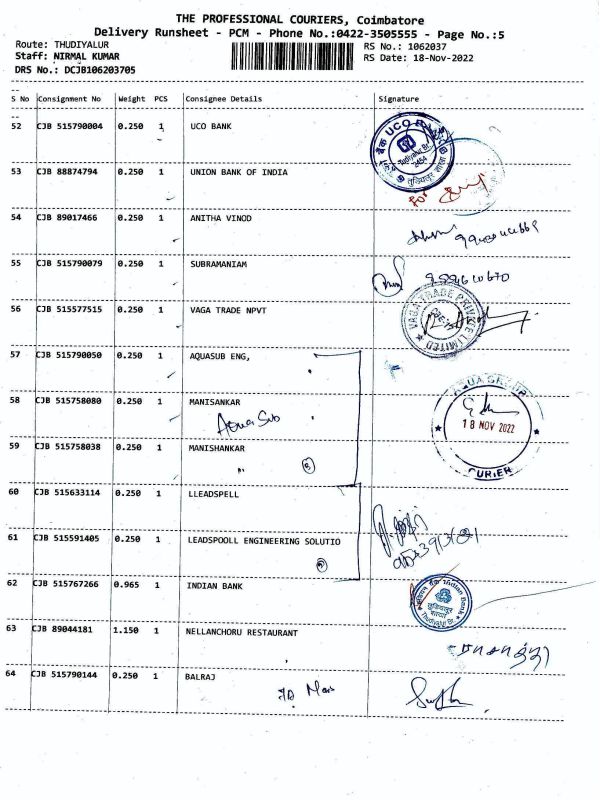 THE PROFESSIONAL COURIERS, Coimbatore
Delivery Runsheet - PCM - Phone No.:0422-3505555 - Page No.:5
Route: THUDIYALUR RS No.: 1062037
Staff: NIRMAL KUMAR RS Date: 18-Nov-2022
DRS No.: DCJB106203705
S No Consignment No Weight PCS Consignee Details Signature
52 CJB 515790004 0.250 1 UCO BANK
UCO
Thudiyalur Br.
2454
53 CJB 88874794 0.250 1 UNION BANK OF INDIA
54 CJB 89017466 0.250 1 ANITHA VINOD
55 CJB 515790079 0.250 1 SUBRAMANIAM
56 CJB 515577515 0.250 1 VAGA TRADE NPVT
VAGA TRADE PRIVATE LIMITED
57 CJB 515790050 0.250 1 AQUASUB ENG,
58 CJB 515758080 0.250 1 MANISANKAR
Aqua Sub
18 NOV 2022
59 CJB 515758038 0.250 1 MANISHANKAR
60 CJB 515633114 0.250 1 LLEADSPELL
61 CJB 515591405 0.250 1 LEADSPOOLL ENGINEERING SOLUTIO
62 CJB 515767266 0.965 1 INDIAN BANK
Indian Bank
Thudiyalur Br.
63 CJB 89044181 1.150 1 NELLANCHORU RESTAURANT
64 CJB 515790144 0.250 1 BALRAJ